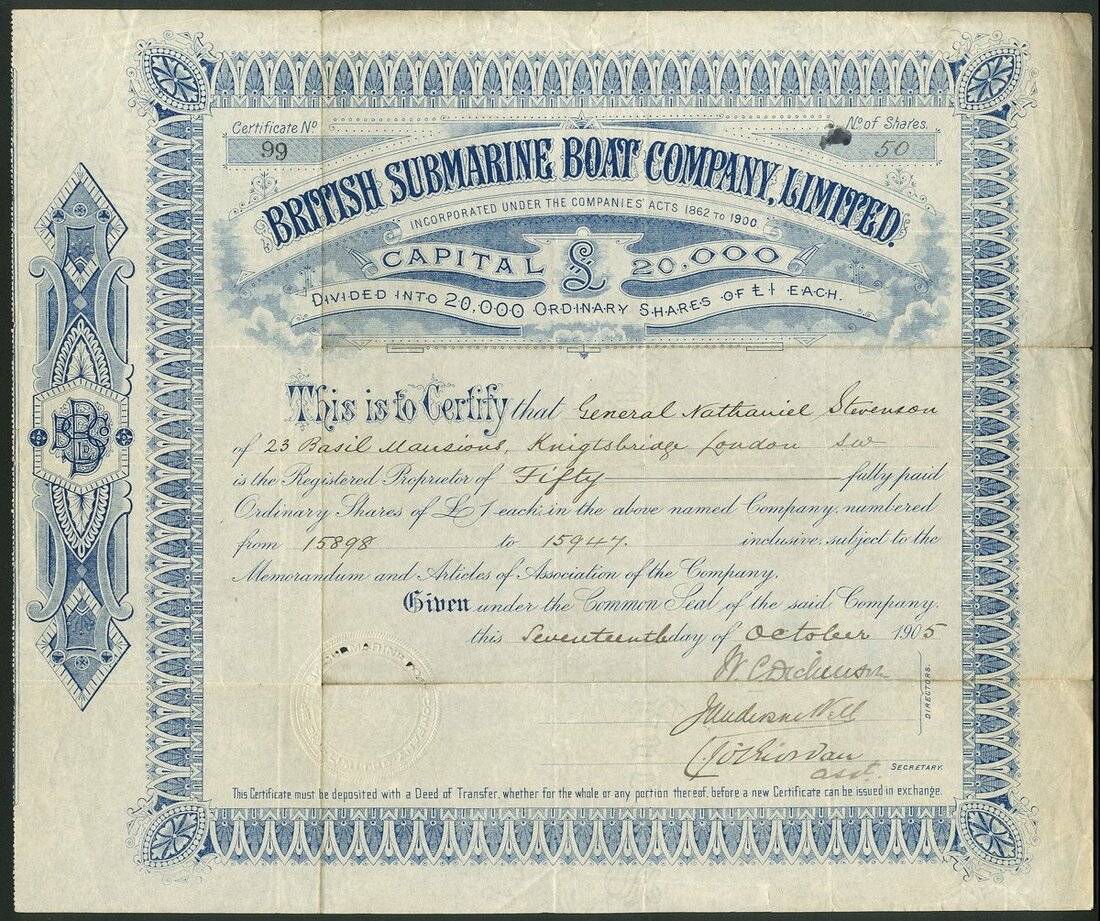 Certificate No
99
No of Shares.
50
BRITISH SUBMARINE BOAT COMPANY, LIMITED.
INCORPORATED UNDER THE COMPANIES' ACTS 1862 TO 1900
CAPITAL £ 20,000
DIVIDED INTO 20,000 ORDINARY SHARES OF £1 EACH.
This is to Certify that General Nathaniel Stevenson
of 23 Basil Mansions, Knigtsbridge London SW
is the Registered Proprietor of Fifty fully paid
Ordinary Shares of £1 each, in the above named Company, numbered
from 15898 to 15947. inclusive, subject to the
Memorandum and Articles of Association of the Company.
Given under the Common Seal of the said Company,
this Seventeenth day of October 1905
W C Dickinson
DIRECTORS.
SECRETARY.
asst.
This Certificate must be deposited with a Deed of Transfer, whether for the whole or any portion thereof, before a new Certificate can be issued in exchange.